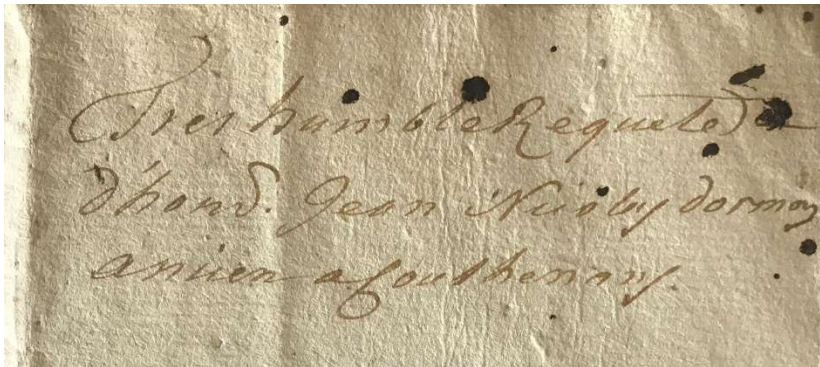 Tres humble Requete
d'hond. Jean dormoy
ancien a Couthenans.